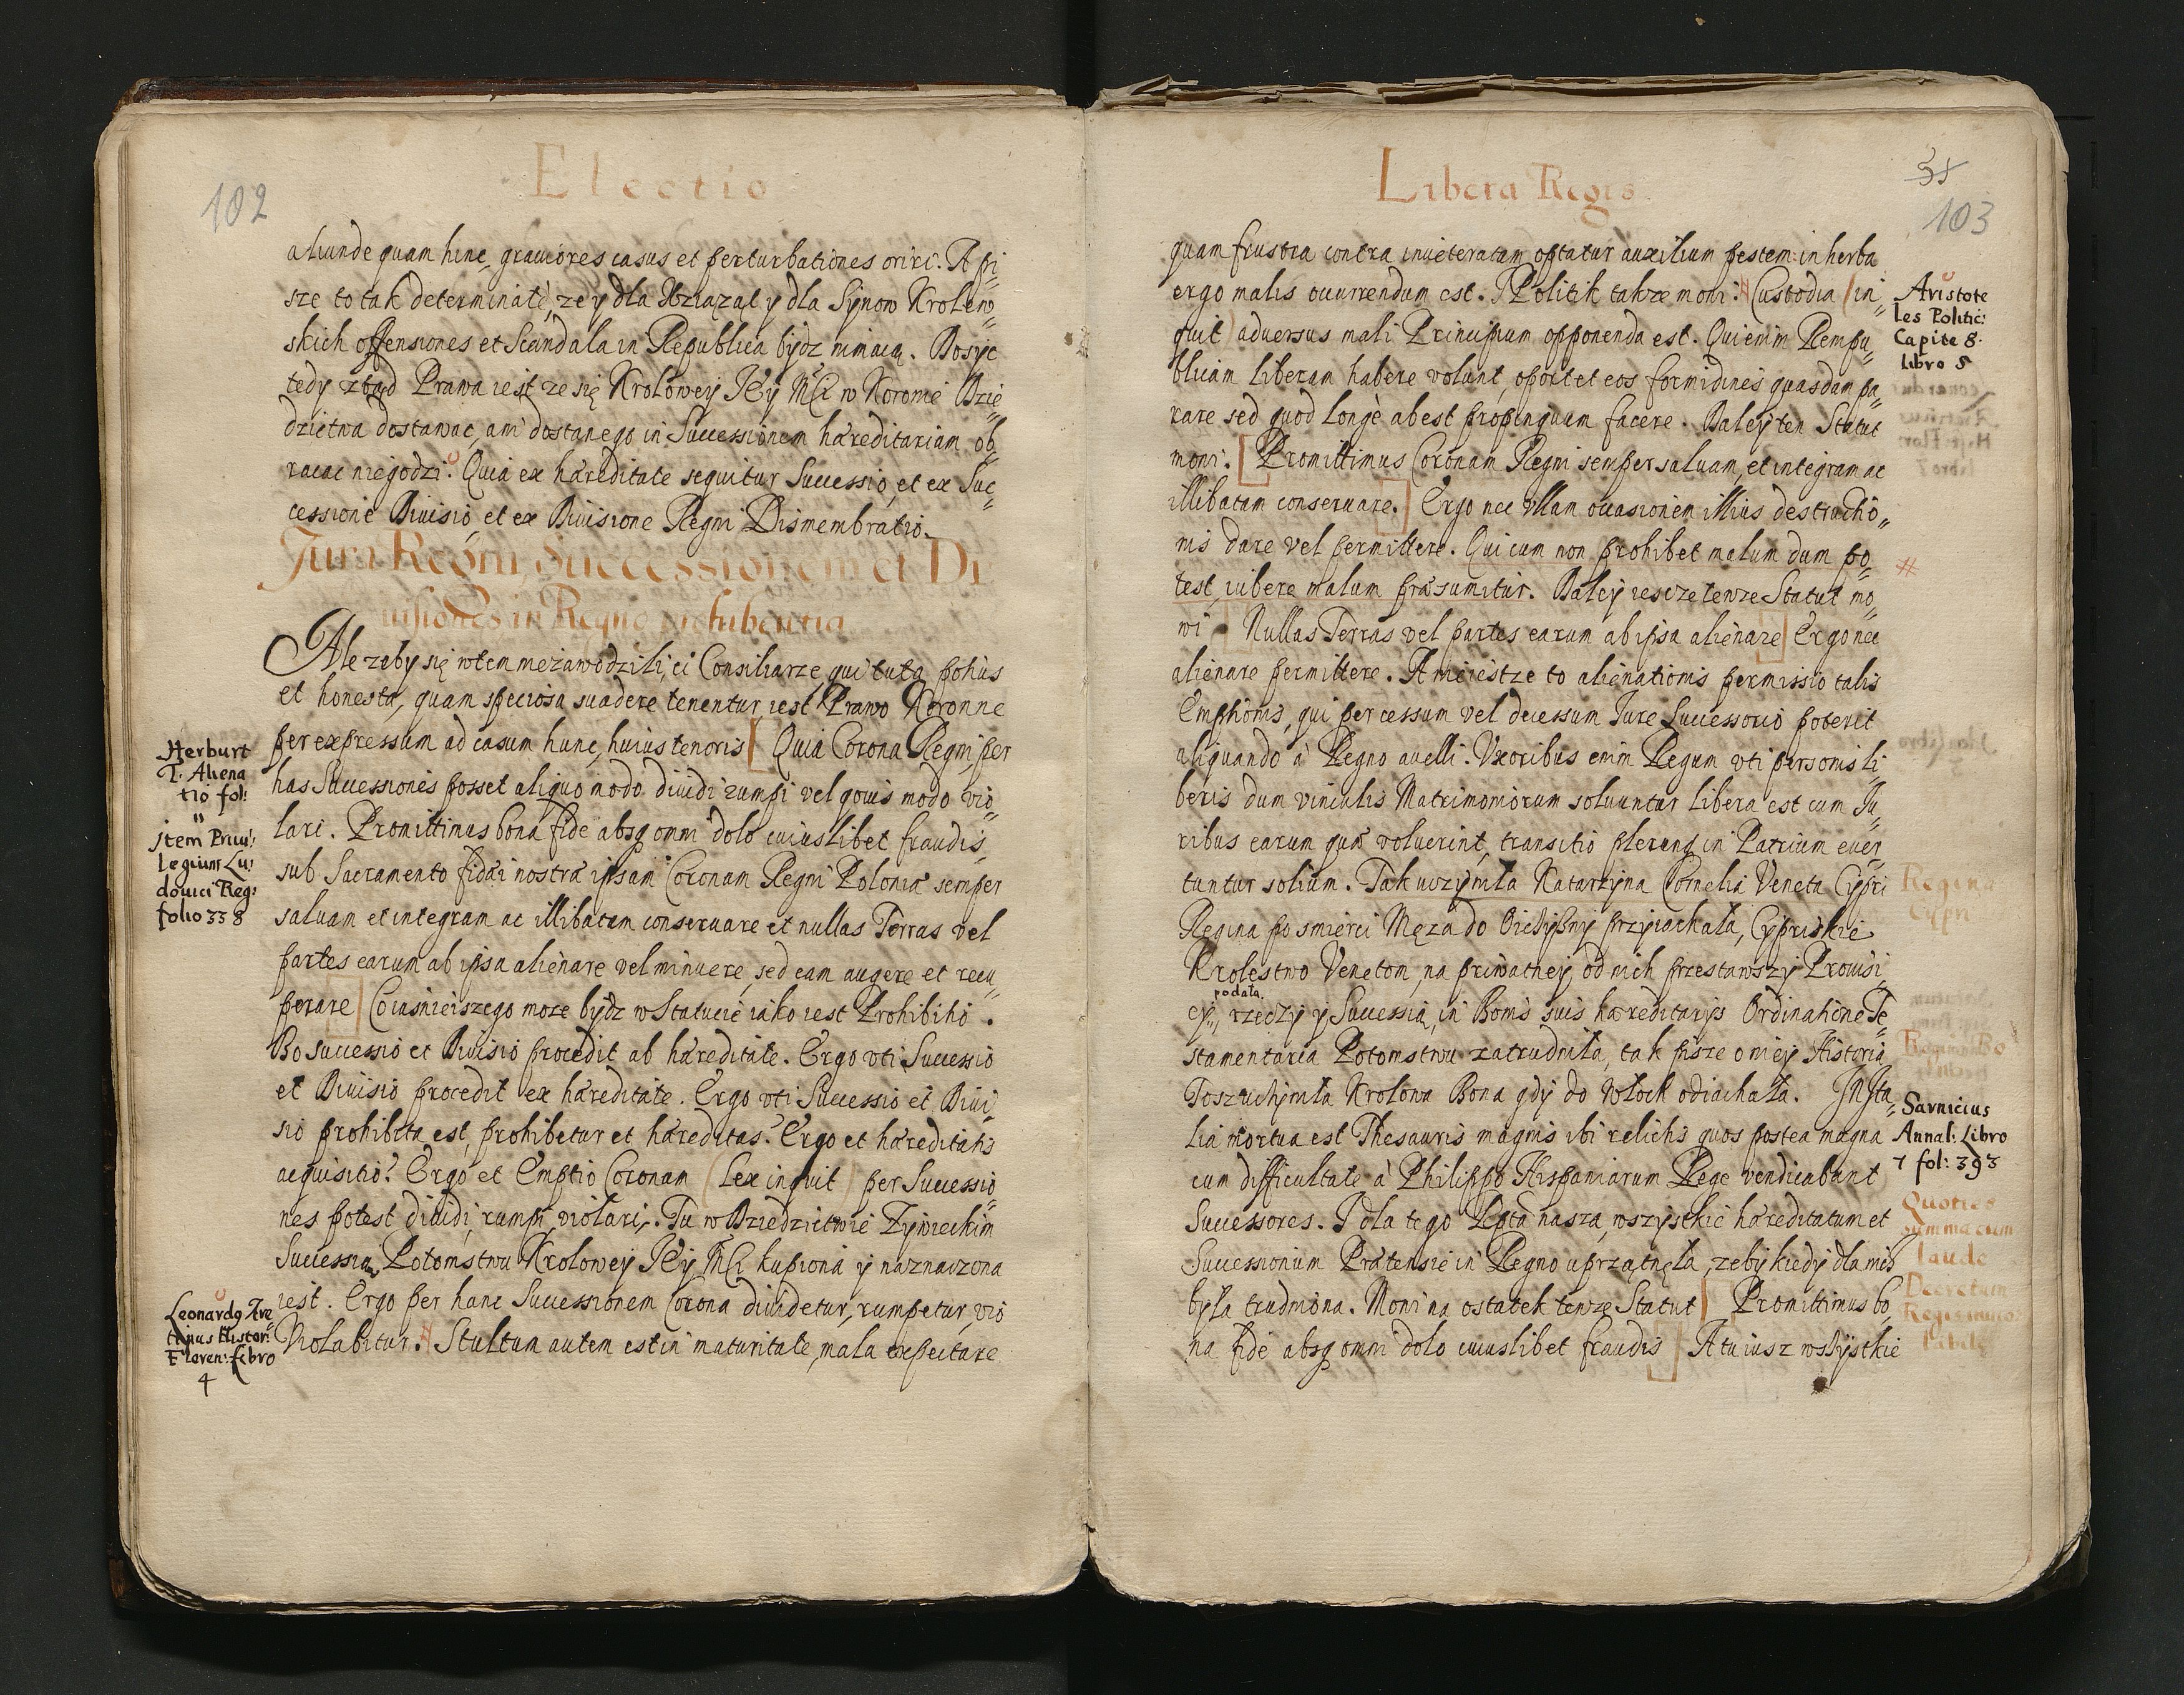 102
Electio
aliunde quam hinc, graviores casus et perturbationes oriri. A pi„
sze to tak determinatè, ze y dla Xiąząt y dla Synow Krolew„
skich offensiones et Scandala in Republica bydz nimaią. Dosyc
tedy ztąd Prawa iest ze się Krolowey JEy Mći w Koronie Dzie„
dzictwa dostawac, ani dostanego in Successionem hæreditariam ob„
racac niegodzi. Quia ex hæreditate sequitur Successio, et ex Suc„
cessione Diuisio, et ex Diuisione Regni Dismembratio.
Jura Regni, Successionem et Di
uisiones in Regno prohibentia
Ale zeby się wtem niezawodzili, ci Consiliarze, qui tuta potius
et honesta, quam speciosa suadere tenentur iest Prawo Koronne
per expressum ad casum hunc, huius tenoris [ Quia Corona Regni, per
has Successiones posset aliquo modo diuidi rumpi vel qouis modo vio„
lari. Promittimus bona fide absq omni dolo cuiuslibet fraudis,
sub Sacramento fidæi nostræ ipsam Coronam Regni Poloniæ semper
saluam et integram ac illibatam conseruare et nullas Terras vel
partes earum ab ipsa alienare vel minuere, sed eam augere et recu„
perare ] Co iasnieiszego moze bydz w Statucie iako iest Prohibitio.
Bo successio et Diuisio procedit ab hæreditate. Ergo vti Successio
et Diuisio procedit ex hæreditate. Ergo vti Successio et Diui„
sio prohibita est, prohibetur et hæreditas? Ergo et hæreditatis
aequisitio? Ergo et Emptio Coronam (Lex inquit) per Successio„
nes potest diuidi, rumpi, violari. Tu w Dziedzictwie Zywieckim
Successia Potomstwu Krolowey JEy Mći kupiona y naznaczona
iest. Ergo per hanc Successionem Corona diuidetur, rumpetur, vio
Violabitur. # Stultum autem est in maturitate, mala expectare
Herburt
T. Aliena
tio fol:
"
jtem Priui:
legium Lu:
douici Reg:
folio 338
Leonardg Are„
tinus Histor:
Floren: libro
4
38
103
Libera Regis
quam frustra contra inueteratam optatur auxilium pestem: in herba
ergo malis occurrendum est. J Politik takze mowi: # Custodia (in„
quit) aduersus mali Principum opponenda est. Qui enim Rempu„
blicam liberam habere volunt, oportet eos formidines quasdam pa„
rare sed quod longè abest propinquum facere. Daley ten Statut
mowi. [ Promittimus Coronam Regni semper saluam, et integram ac
illibatam conseruare. ] Ergo nec vllam occasionem illius destructio„
nis dare vel permittere. Qui cum non prohibet malum dum po„
test, iubere malum præsumitur. Daley ieszcze tenze Statut mo„
wi [ Nullas Terras vel partes earum ab ipsa alienare ] Ergo nec
alienare permittere. A nie iestze to alienationis permissio talis
Emptionis, qui per cessum vel decessum Jure Successorio poterit
aliquando à Regno auelli. Vxoribus enim Regum vti personis li„
beris dum vinculis Matrimoniorum soluuntur libera est cum Ju„
ribus earum quo voluerint, transitio plerunq in Patrium euer„
tuntur solium. Tak uczyniła Katarzyna Cornelia Veneta Cypri
Regina po smierci Męza do Oiczyzny przyiachała, Cypriskie
Krolestwo Venetom, na priwatney od nich przestawszy Prouisi„
podała.
ey„ rzeczy y Successią in Bonis suis hæreditarijs Ordinatione Te„
stamentaria Potomstwu zatrudniła, tak pisze o niey Historia
Toz uczyniła Krolowa Bona gdy do Włoch odiachała. IN Ita„
lia mortua est Thesauris magnis ibi relictis quos postea magna
cum difficultate à Philippo Hispaniarum Rege vendicabant
Successores. J dla tego Rpta nasza, wszystkie hæreditatum et
Successionum Prætensie in Regno uprzątnęła, zeby kiedy dla nich
była trudniona. Mowi na ostatek tenze Statut [ Promittimus bo„
na fide absq omni dolo cuiuslibet fraudis ] A tu iusz wszystkie
Aristote
les Politic:
Capite 8.
libro 5
#
Regina
Cypri
Sarnicius
Annal: Libro
7 fol: 393
Quoties
summa cum
laude
Decretum